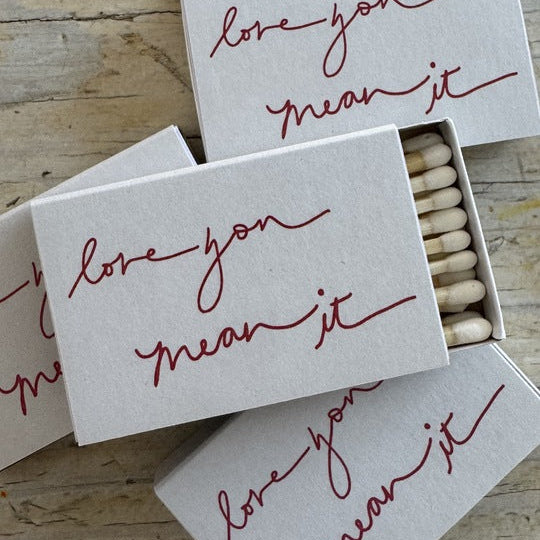 love you
mean it
love you
mean it
me
love you
mean it